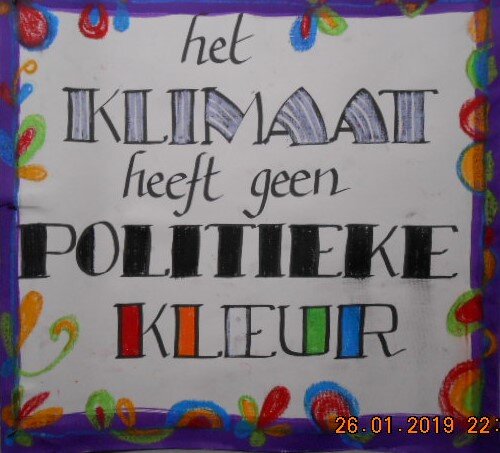 het
KLIMAAT
heeft geen
POLITIEKE
KLEUR
26.01.2019 22: